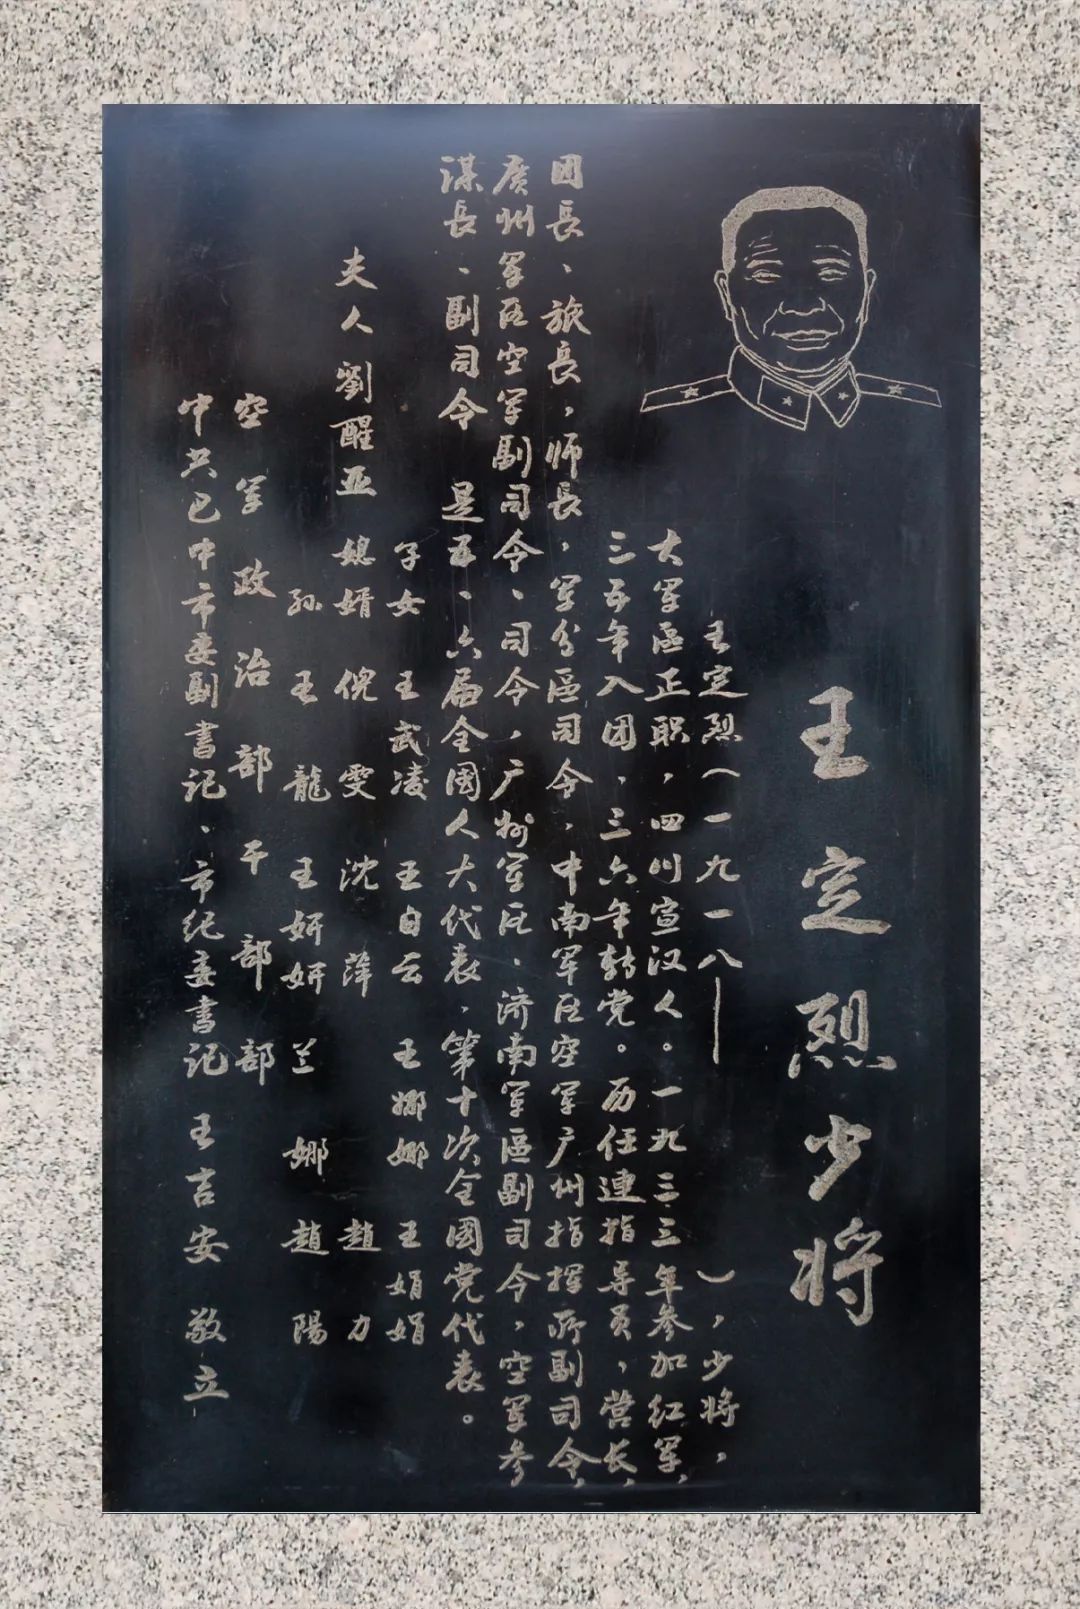 王定烈少将
王定烈（一九一八——　　），少将，
大军區正职，四川宣汉人。一九三三年参加红军，
三五年入团，三六年转党。历任連指导员，营长，
团長、旅長，师長，军分區司令，中南军区空军广州指揮所副司令，
廣州军区空军副司令、司令，广州军区、济南军區副司令，空军参
谋長、副司令 是五、六届全國人大代表，第十次全國党代表。
子女 王武凌 王自云 王娜娜 王娟娟
夫人劉醒亚 媳婿 倪雯 沈萍 趙力
孙 王龍 王妍妍 兰娜 趙陽
空军政治部干部部
中共巴中市委副書记、市纪委書记 王吉安 敬立